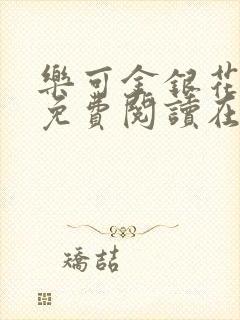 樂可金銀花
免費閱讀在
矯喆